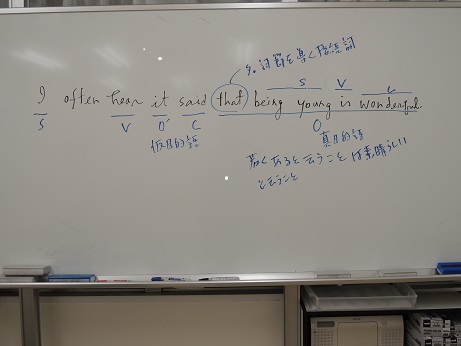 名詞節を導く接続詞
S V C
I often hear it said that being young is wonderful.
S V O' C O
仮目的語 真目的語
若くあると云うことは素晴らしい
と云うこと